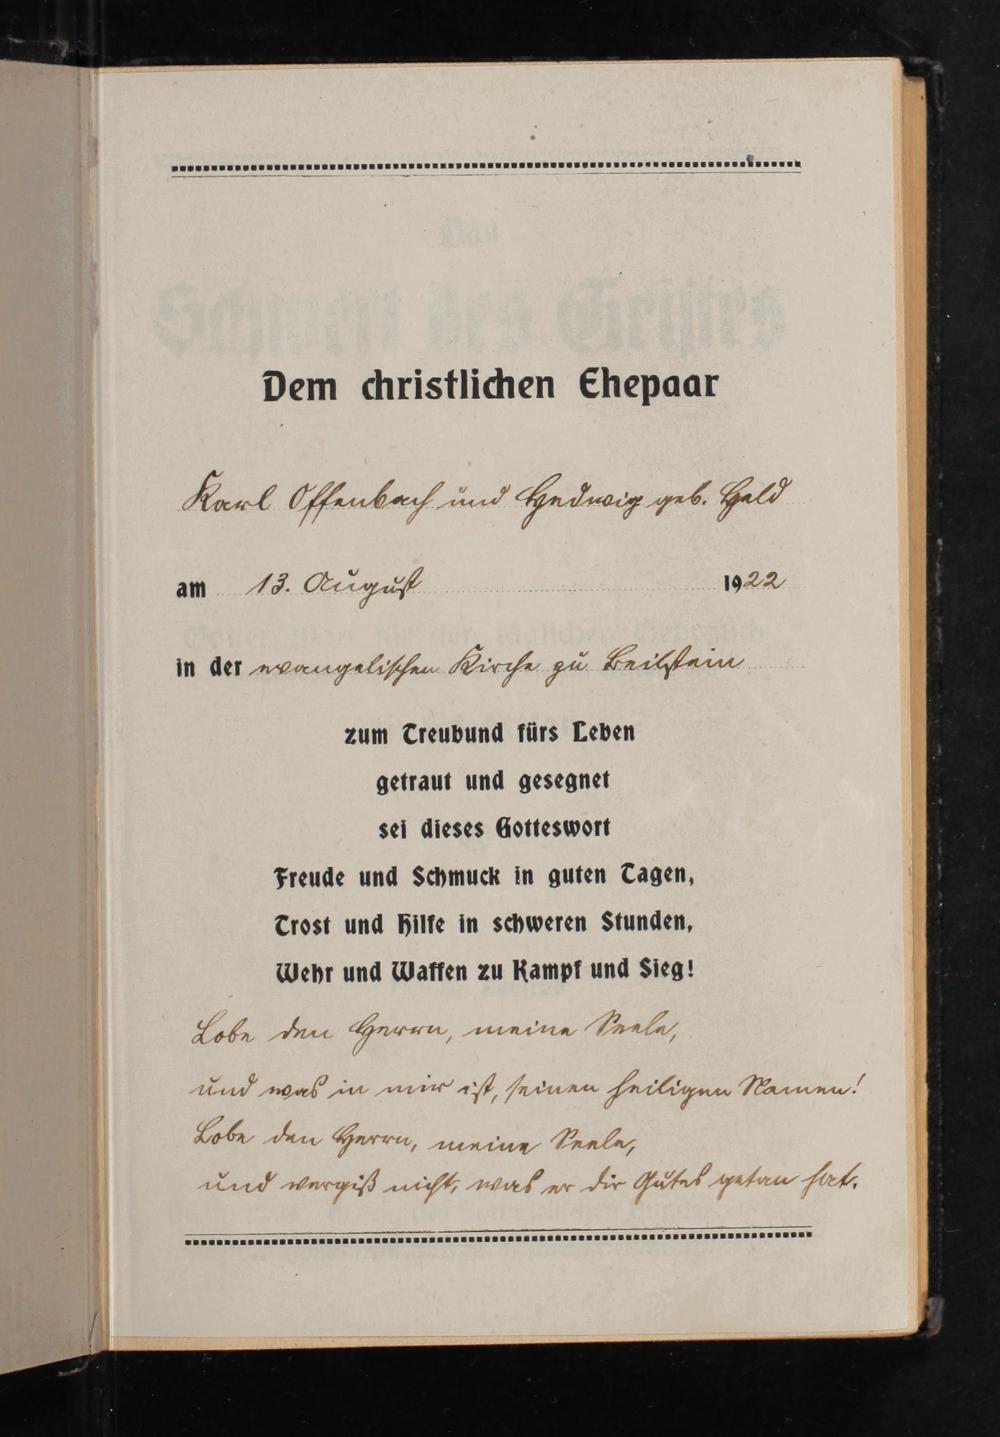 Dem christlichen Ehepaar
Karl Offenbach und Hedwig geb. Held
am 13. August 1922
in der evangelischen Kirche zu Beilstein
zum Treubund fürs Leben
getraut und gesegnet
sei dieses Gotteswort
Freude und Schmuck in guten Tagen,
Trost und Hilfe in schweren Stunden,
Wehr und Waffen zu Kampf und Sieg!
Lobe den Herrn, meine Seele,
und was in mir ist, seinen heiligen Namen!
Lobe den Herrn, meine Seele,
und vergiß nicht, was er dir Gutes getan hat.